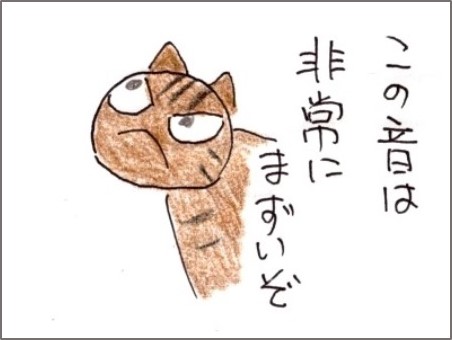 この音は
非常に
まずいぞ